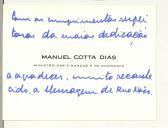 Com os cumprimentos
da maior dedicação
MANUEL COTTA DIAS
MINISTRO DAS FINANÇAS E DA ECONOMIA
agradecer, muito reconhe
cido, a Mensagem de